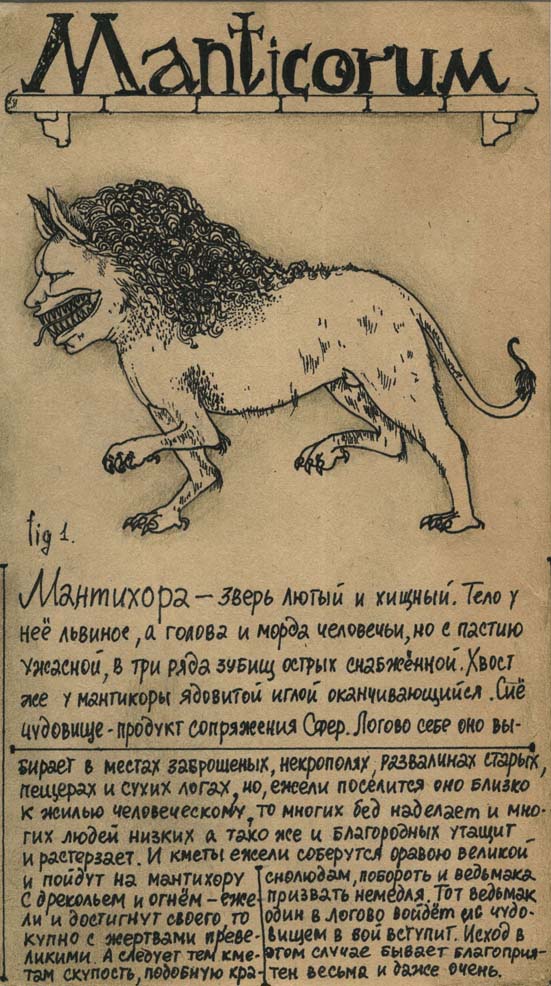 Manticorum
fig 1.
Мантихора – зверь лютый и хищный. Тело у
неё львиное, а голова и морда человечьи, но с пастию
ужасной, в три ряда зубищ острых снабжённой. Хвост
же у мантикоры ядовитой иглой оканчивающийся. Сиё
чудовище - продукт сопряжения Сфер. Логово себе оно вы-
бирает в местах заброшеных, некрополях, развалинах старых,
пещерах и сухих логах, но, ежели поселится оно близко
к жилью человеческому, то многих бед наделает и мно-
гих людей низких а тако же и благородных утащит
и растерзает. И кметы ежели соберутся оравою великой
и пойдут на мантихору
с дрекольем и огнём – еже-
ли и достигнут своего, то
купно с жертвами преве-
ликими. А следует тем кме-
там скупость, подобную кра-
снолюдам, побороть и ведьмака
призвать немедля. Тот ведьмак
один в логово войдёт и с чудо-
вищем в вой вступит. Исход в
этом случае бывает благоприя-
тен весьма и даже очень.